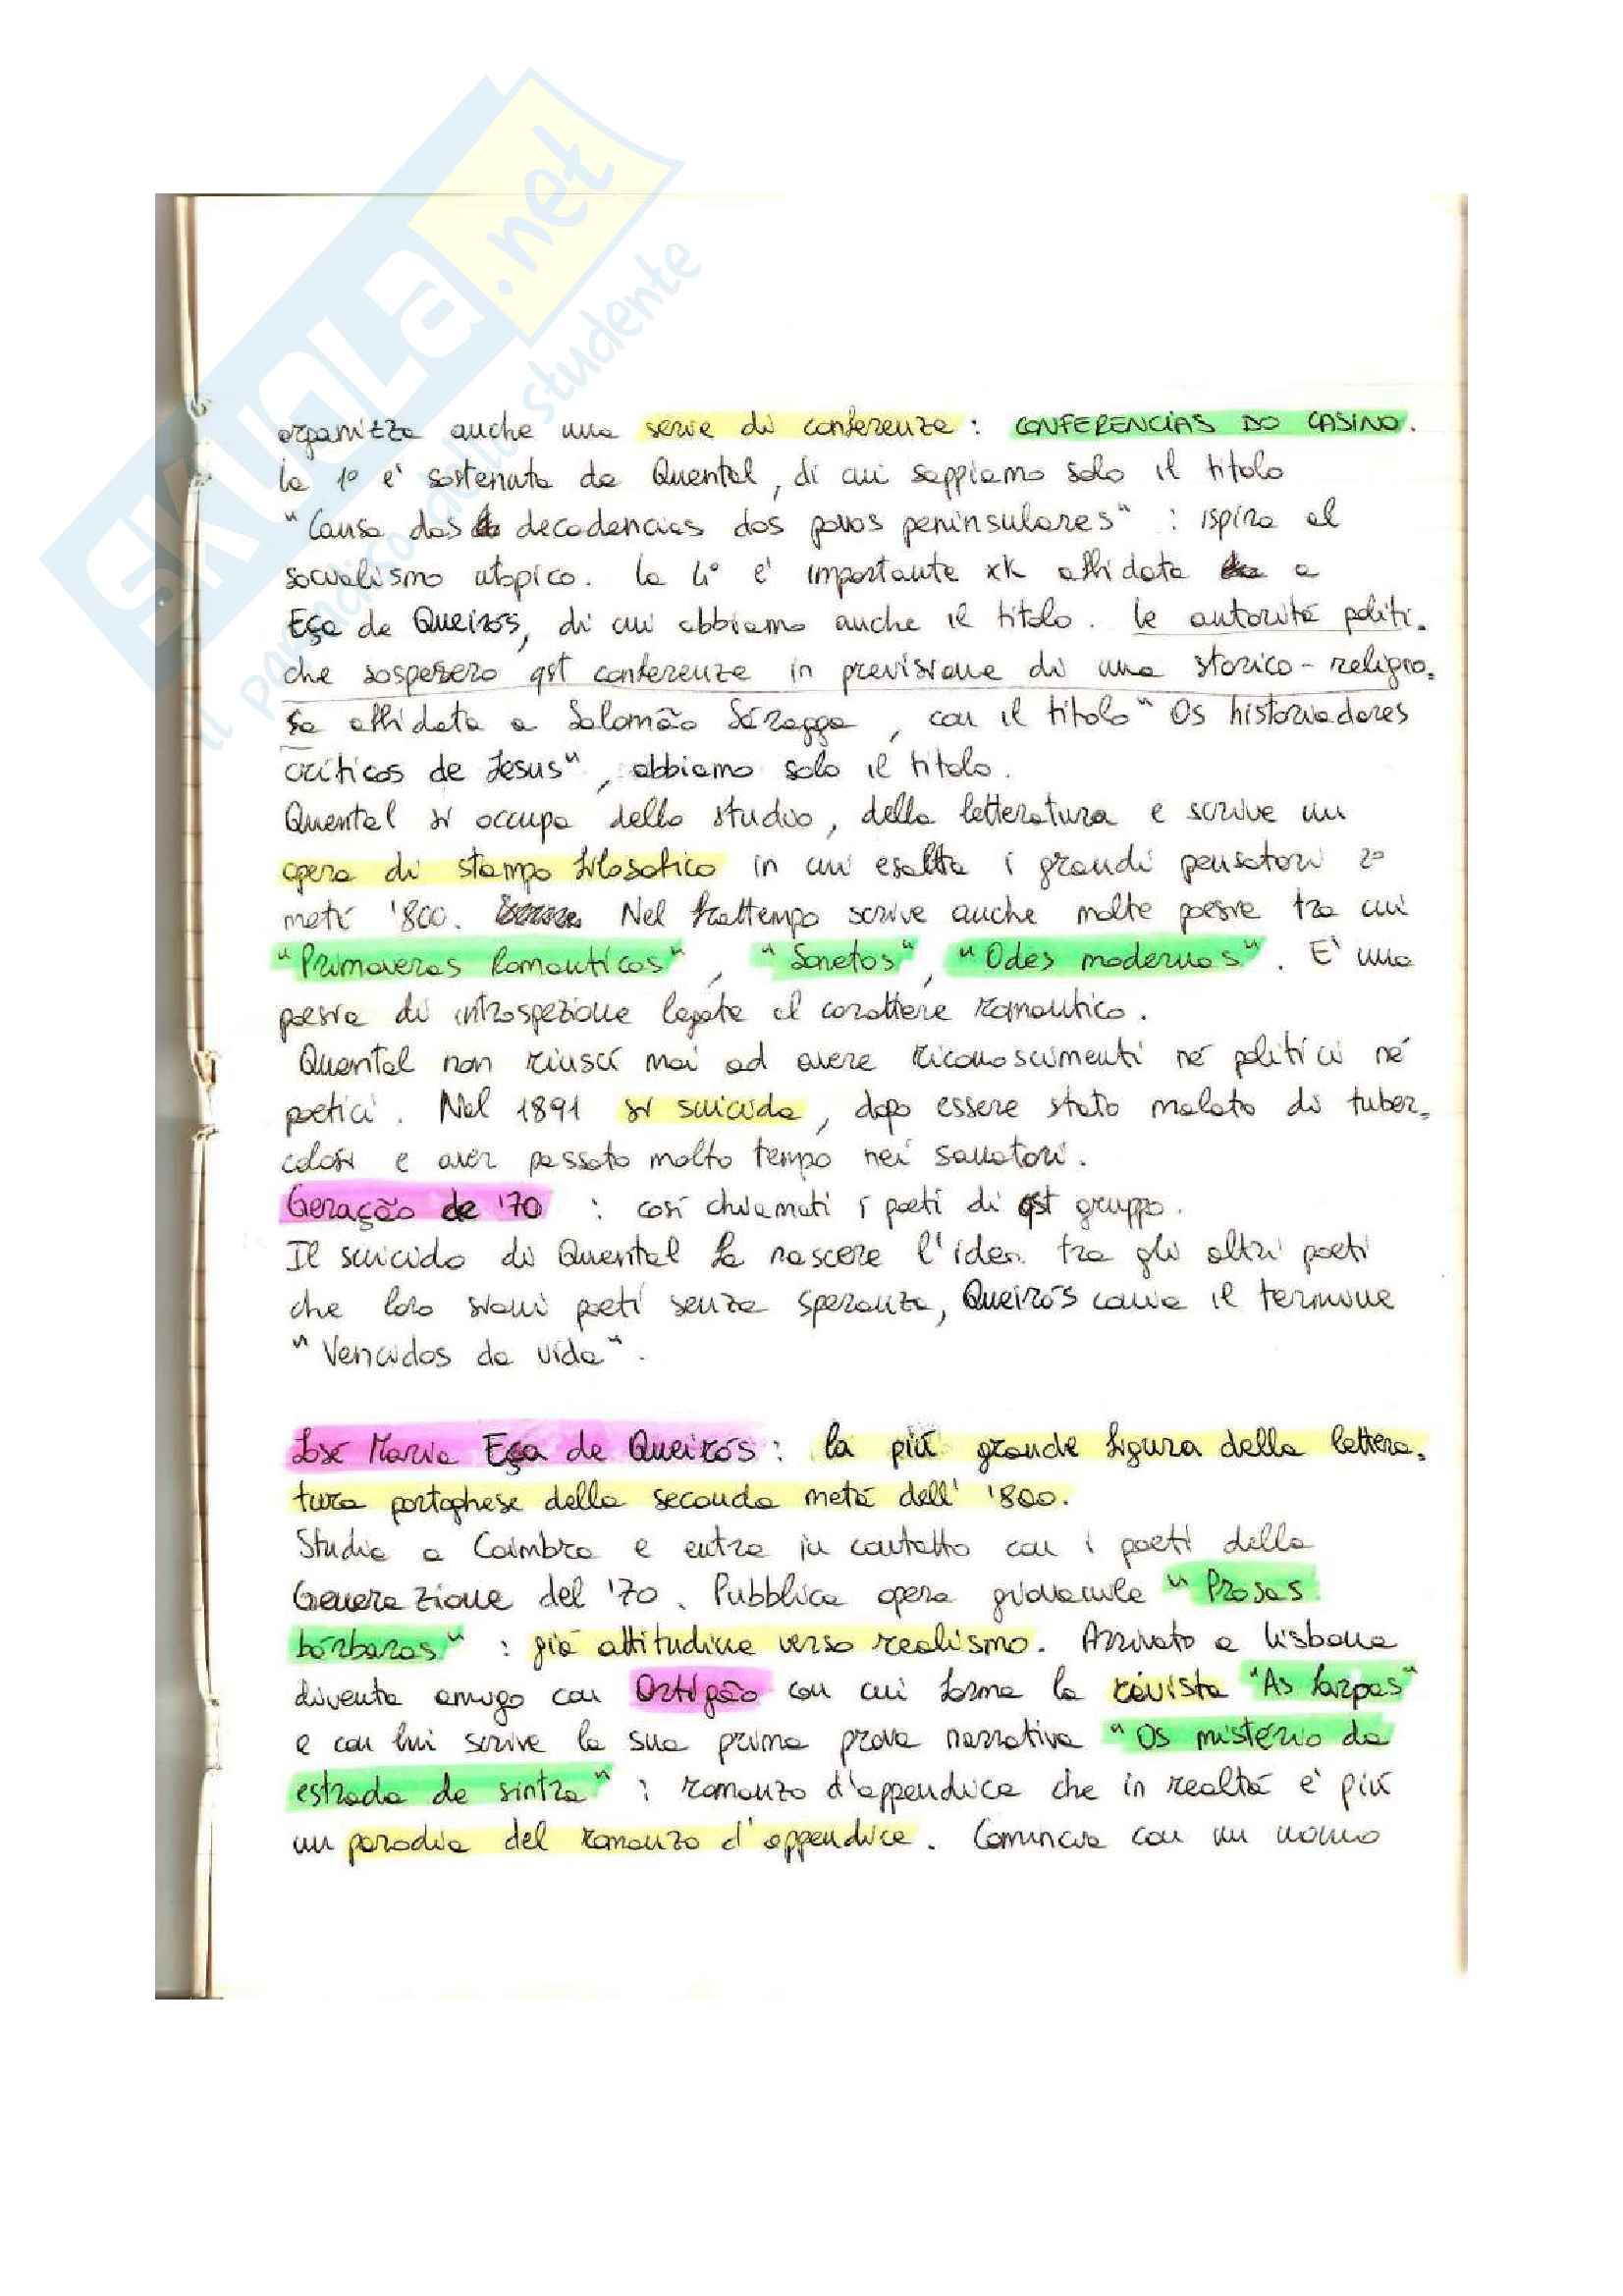 SKUOLA.net
il paradiso dello studente
organizza anche una serie di conferenze: CONFERENCIAS DO CASINO.
la 1° e' sostenuta da Quental, di cui sappiamo solo il titolo
"Causa das decadencias dos povos peninsulares" : ispira al
socialismo utopico. la 4° e' importante xk affidata a
Eça de Queirós, di cui abbiamo anche il titolo. le autorità politi-
che sospesero qst conferenze in previsione di una storico-religio-
sa affidata a Salomão Sáragga, con il titolo "Os historiadores
críticos de Jesus", abbiamo solo il titolo.
Quental si occupa dello studio, della letteratura e scrive un
opera di stampo filosofico in cui esalta i grandi pensatori 2°
metà '800. Nel frattempo scrive anche molte poesie tra cui
"Primaveras Romanticas", "Sonetos", "Odes modernas". E' una
poesia di introspezione legata al carattere romantico.
Quental non riuscì mai ad avere riconoscimenti né politici né
poetici. Nel 1891 si suicida, dopo essere stato malato di tuber-
colosi e aver passato molto tempo nei sanatori.
Geração de '70 : così chiamati i poeti di qst gruppo.
Il suicido di Quental fa nascere l'idea tra gli altri poeti
che loro siano poeti senza speranza, Queirós conia il termine
"Vencidos da vida".
José Maria Eça de Queirós: la più grande figura della lettera-
tura portoghese della seconda metà dell' '800.
Studia a Coimbra e entra in contatto con i poeti della
Generazione del '70. Pubblica opera giovanile "Prosas
bárbaras" : già attitudine verso realismo. Arrivato a Lisbona
diventa amico con Ortigão con cui forma la rivista "As farpas"
e con lui scrive la sua prima prova narrativa "Os mistério da
estrada de sintra" : romanzo d'appendice che in realtà e' più
un parodia del romanzo d'appendice. Comincia con un uomo